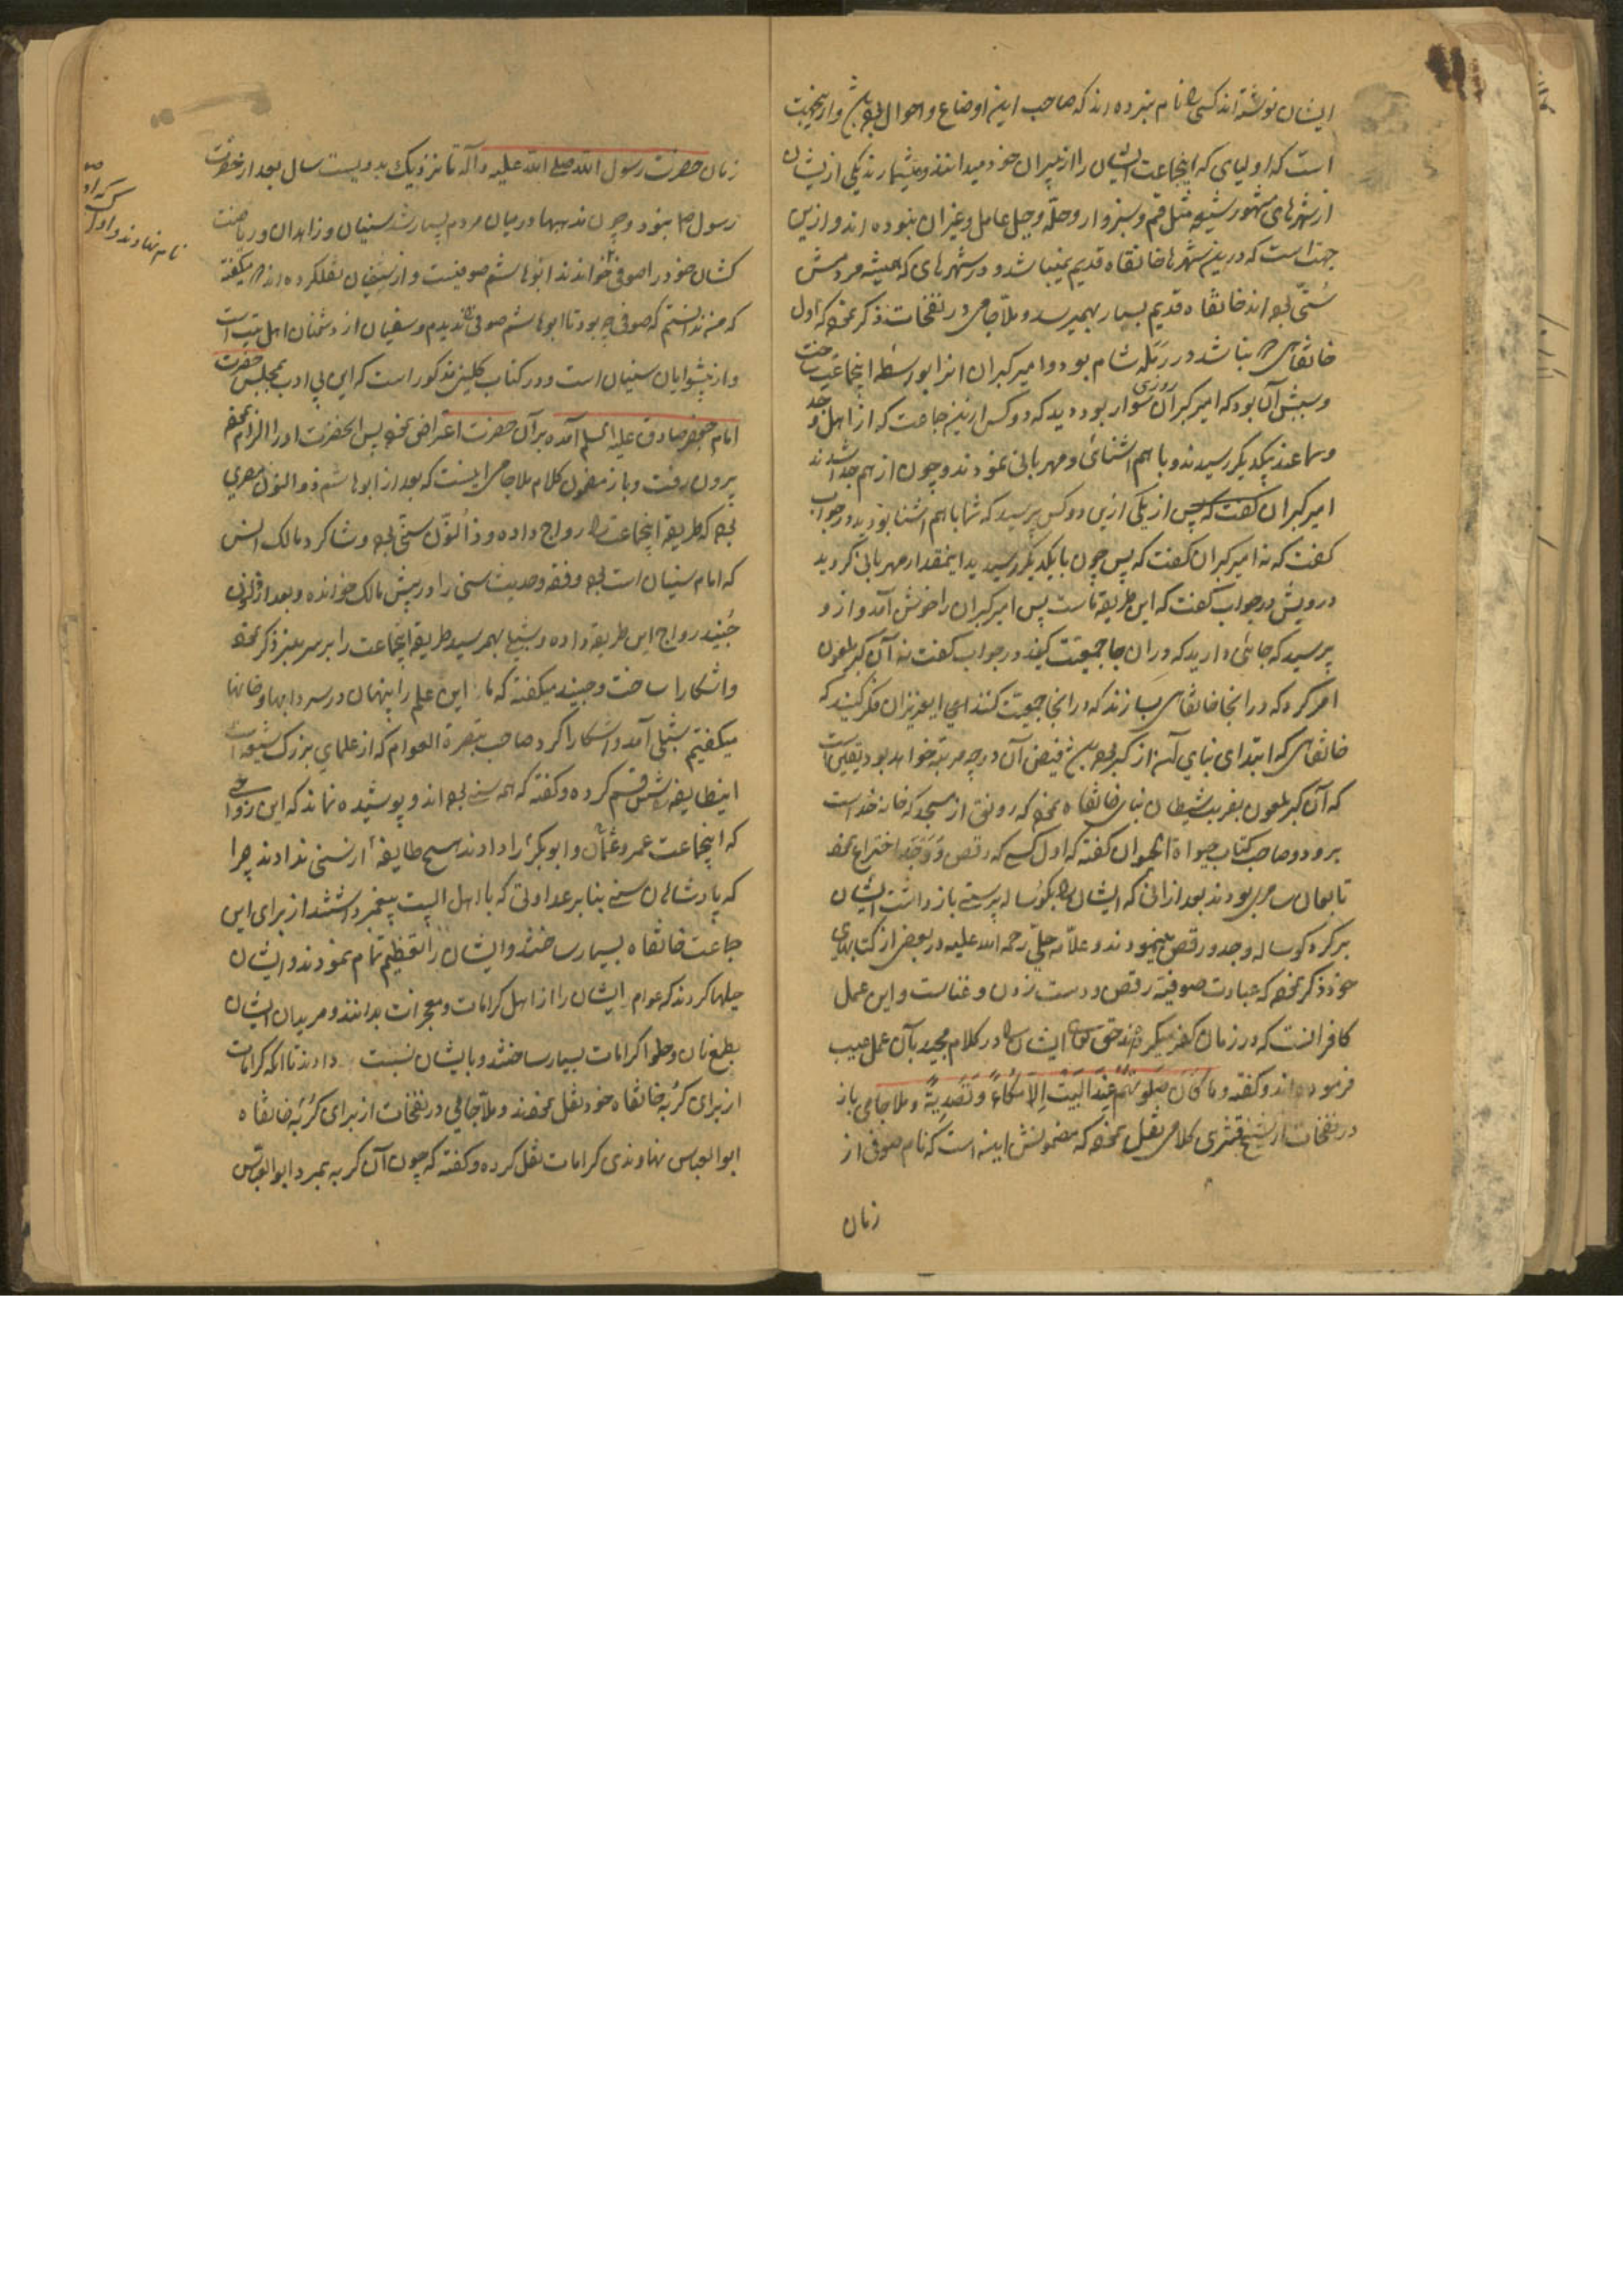 ایشان نوشته‌اند کسی را نام نبرده‌اند که صاحب این اوضاع و احوال بوده باشد و ازینجهت
است که اولیای که اینجماعت ایشان را از پیران خود میدانند و میشمارند یکی ازیشان
از شهرهای مشهور شیعه مثل قم و سبزوار و حله و جبل عامل و غیر آن نبوده‌اند و ازین
جهت است که درین شهرها خانقاه قدیم نمیباشد و در شهرهای که همیشه مردمش
سُنّی بوده‌اند خانقاه قدیم بسیار بهمیرسد و ملا جامی در نفحات ذکر نموده که اول
خانقاهی که بنا شد در رمله شام بود و امیر کبران آنرا بواسطه اینجماعت ساخت
و سببش آن بود که امیر کبران روزی سوار بود دید که دو کس ازین جماعت که از اهل وجد
و سماعند بیکدیگر رسیدند و با هم اشنائی و مهربانی نمودند و چون از هم جدا شدند
امیر کبران گفت که پس از یکی ازین دو کس پرسید که شما با هم اشنا بودید در جواب
گفت که نه امیر کبران گفت که پس چون بایکدیگر رسیدید اینمقدار مهربانی کردید
درویش در جواب گفت که این طریقه ماست پس امیر کبران را خوش آمد و از و
پرسید که جائی دارید که در ان جا جمعیت کنید در جواب گفت نه آن کبر ملعون
امر کرد که در انجا خانقاهی بسازند که در انجا جمعیت کنند ای عزیزان فکر کنید که
خانقاهی که ابتدای بنای آن از کبر بوده باشد فیض آن در چه مرتبه خواهد بود یقین است
که آن کبر ملعون بفریب شیطان بنای خانقاه نموده که رونق از مسجد که خانه خداست
برود و صاحب کتاب حیوة الحیوان گفته که اول کسی که رقص و وجد اختراع نموده
تابعان سامری بودند بعد از انی که ایشان را بگوساله پرستی باز داشت ایشان
بر گرد گوساله وجد و رقص مینمودند و علامه حلّی رحمه الله علیه در بعض از کتابهای
خود ذکر نموده که عبادت صوفیه رقص و دست زدن و غناست و این عمل
کافرانست که در زمان کفر میکردند حق تعالی ایشان را در کلام مجید بآن عمل عیب
فرموده‌اند و گفته و ما کَانَ صَلوتُهُم عِندَ البَیتِ اِلّا مُکَاءً وَ تَصدِیَةً و ملا جامی باز
در نفحات از شیخ قشری کلامی نقل نموده که مضمونش اینه است که نام صوفی از
زمان
زمان حضرت رسول الله صلی الله علیه و آله تا نزدیک بدویست سال بعد از حضرت
رسول ص نبود و چون مذهبها در میان مردم بسیار شد سنیان و زاهدان و ریاضت
کشان خود را صوفی خواندند ابوهاشم صوفیست و از سفیان نقلکرده‌اند که میگفته
که من ندانستم که صوفی چه بود تا ابوهاشم صوفی را ندیدم و سفیان از دشمنان اهل بیت است
و از پیشوایان سنیان است و در کتاب کلینی مذکور است که این بی ادب بمجلس حضرت
امام جعفر صادق علیه السلم آمده بر آن حضرت اعتراض نموده پس انحضرت او را الزام نموده
بیرون رفت و باز مضمون کلام ملا جامی اینست که بعد از ابوهاشم ذوالنون مصری
بوده که طریقه اینجماعت را رواج داده و ذوالنّون سنّی بوده و شاگرد مالک انس
که امام سنیان است بوده و فقه و حدیث سنی را در پیش مالک خوانده و بعد از ذوالنون
جُنید رواج این طریقه داده و شبلی بهمرسید طریقه اینجماعت را بر سر منبر ذکر نموده
و اشکارا ساخت و جنید میگفته که ما این علم را پنهان در سردابها و خانها
میگفتیم شبلی آمد و اشکارا کرد صاحب تبصرة العوام که از علمای بزرگ شیعه است
اینطایفه را شش قسم کرده و گفته که همه سنی بوده‌اند و پوشیده نماند که این رواجی
که اینجماعت عمر و عثمان و ابوبکر را دادند هیچ طایفه از سنی ندادند چرا
که پادشاهان سنی بنابر عداوتی که با اهل البیت پیغمبر داشتند از برای این
جماعت خانقاه بسیار ساختند و ایشان را تعظیم تمام نمودند و ایشان
حیلها کردند که عوام ایشان را از اهل کرامات و معجزات بدانند و مریدان ایشان
بطمع نان و حلوا کرامات بسیار ساختند و بایشان نسبت دادند تا انکه کرامات
از برای گربه خانقاه خود نقل نمودند و ملا جامی در نفحات از برای گربه خانقاه
ابوالعباس نهاوندی کرامات نقل کرده و گفته که چون آن گربه بمرد ابوالعباس